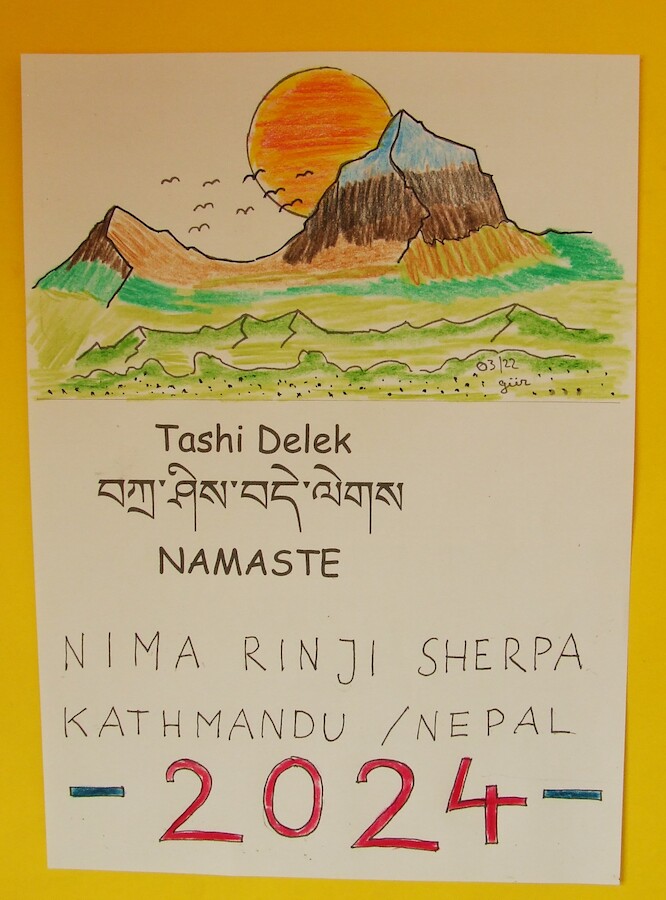 03/22
gür
Tashi Delek
བཀྲ་ཤིས་བདེ་ལེགས
NAMASTE
NIMA RINJI SHERPA
KATHMANDU /NEPAL
- 2024 -